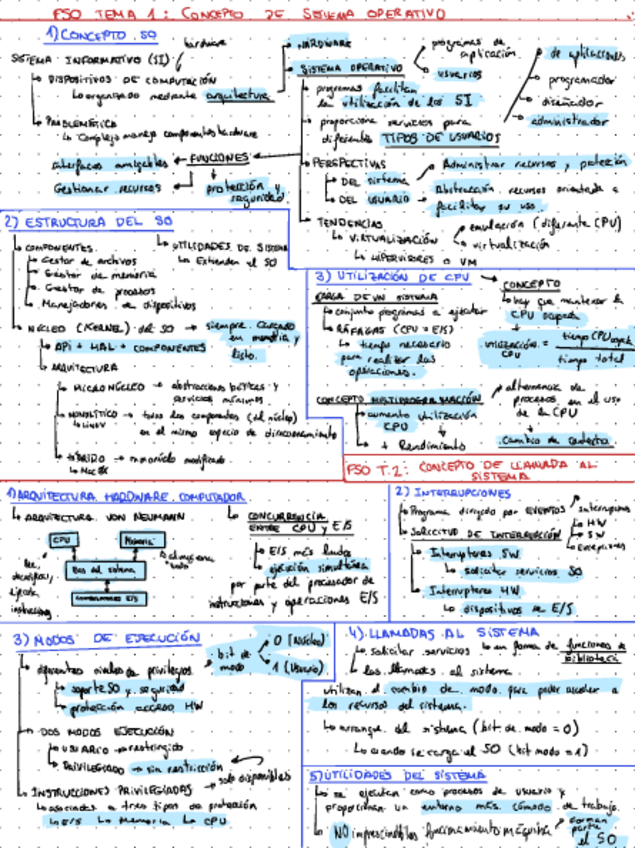 FSO TEMA 1: CONCEPTO DE SISTEMA OPERATIVO
1) CONCEPTO SO
hardware
SISTEMA INFORMATIVO (SI)
↳ DISPOSITIVOS DE COMPUTACIÓN
↳ organizado mediante arquitectura
↳ PROBLEMÁTICA
↳ Complejo manejo componentes hardware
Interfaces amigables ← FUNCIONES
Gestionar recursos
protección y seguridad
HARDWARE
SISTEMA OPERATIVO
programas de aplicación
usuarios
↳ programas facilitan
la utilización de los SI
↳ proporciona servicios para
diferentes TIPOS DE USUARIOS
de aplicaciones
programador
diseñador
administrador
PERSPECTIVAS
↳ DEL sistema → Administrar recursos y protección
↳ DEL USUARIO → Abstracción recursos orientada a
facilitar su uso.
TENDENCIAS
↳ VIRTUALIZACIÓN
emulación (diferente CPU)
virtualización
↳ HIPERVISORES O VM
2) ESTRUCTURA DEL SO
COMPONENTES
↳ Gestor de archivos
↳ Gestor de memoria
↳ Gestor de procesos
↳ Manejadores de dispositivos
↳ UTILIDADES DE SISTEMA
↳ Extienden el SO
NÚCLEO (KERNEL) del SO → siempre cargado
en memoria y
listo.
↳ API + HAL + COMPONENTES
↳ ARQUITECTURA
↳ MICRONÚCLEO → abstracciones básicas y
servicios mínimos
↳ MONOLÍTICO → todos los componentes (del núcleo)
en el mismo espacio de direccionamiento
↳ LINUX
↳ HÍBRIDO → micronúcleo modificado
3) UTILIZACIÓN DE CPU
CONCEPTO
↳ hay que mantener la
CPU ocupada
UTILIZACIÓN CPU = tiempo CPU ocupada / tiempo total
CARGA DE UN SISTEMA
↳ conjunto programas a ejecutar
↳ RÁFAGAS (CPU o E/S)
↳ tiempo necesario
para realizar las
operaciones.
CONCEPTO MULTIPROGRAMACIÓN
↳ aumento utilización
CPU
↳ + Rendimiento
alternancia de
procesos en el uso
de la CPU
Cambio de contexto
FSO T.2: CONCEPTO DE LLAMADA AL
SISTEMA
1) ARQUITECTURA HARDWARE COMPUTADOR
↳ ARQUITECTURA VON NEUMANN
CPU
Memoria
Bus del sistema
Controladores E/S
Lee,
decodifica,
ejecuta
instrucciones
almacena
todo
↳ CONCURRENCIA
ENTRE CPU y E/S
↳ E/S más lenta
↳ ejecución simultánea
por parte del procesador de
instrucciones y operaciones E/S
2) INTERRUPCIONES
↳ Programa dirigido por EVENTOS
↳ SOLICITUD DE INTERRUPCIÓN
Interrupciones
↳ HW
↳ SW
↳ Excepciones
↳ Interruptores SW
↳ solicitar servicios SO
↳ Interruptores HW
↳ dispositivos de E/S
3) MODOS DE EJECUCIÓN
↳ diferentes niveles de privilegios
↳ soporte SO y seguridad
↳ protección acceso HW
bit de
modo
0 (Núcleo)
1 (Usuario)
↳ DOS MODOS EJECUCIÓN
↳ USUARIO → restringido
↳ PRIVILEGIADO → sin restricción
↳ INSTRUCCIONES PRIVILEGIADAS → solo disponibles
↳ asociadas a tres tipos de protección
↳ E/S ↳ Memoria ↳ CPU
4) LLAMADAS AL SISTEMA
↳ solicitar servicios ↳ en forma de funciones de
biblioteca
↳ las llamadas al sistema
utilizan el cambio de modo para poder acceder a
los recursos del sistema.
↳ arranque del sistema (bit de modo = 0)
↳ cuando se carga el SO (bit modo = 1)
5) UTILIDADES DEL SISTEMA
↳ se ejecutan como procesos de usuario y
proporcionan un entorno más cómodo de trabajo.
↳ NO imprescindibles funcionamiento máquina
forman
parte
el SO